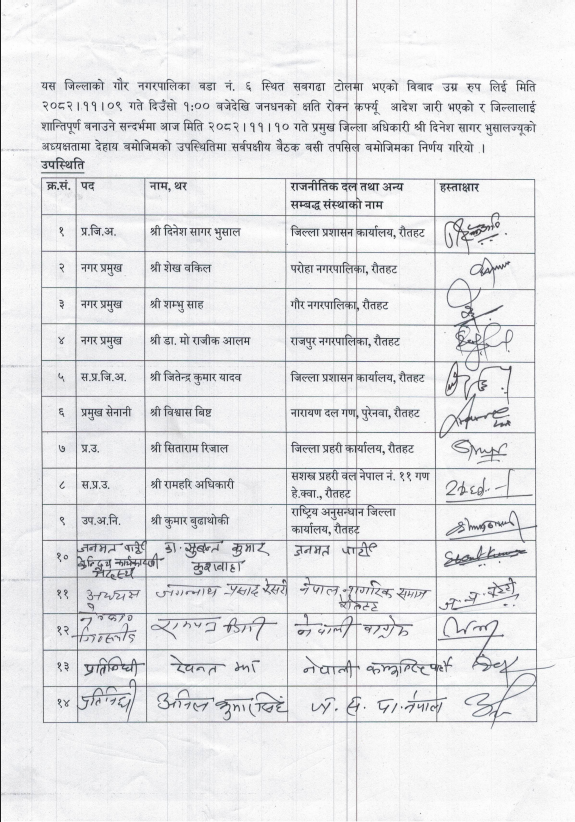 यस जिल्लाको गौर नगरपालिका वडा नं. ६ स्थित सवगढा टोलमा भएको विवाद उग्र रुप लिई मिति
२०८२।११।०९ गते दिउँसो १:०० बजेदेखि जनधनको क्षति रोक्न कर्फ्यू आदेश जारी भएको र जिल्लालाई
शान्तिपूर्ण बनाउने सन्दर्भमा आज मिति २०८२।११।१० गते प्रमुख जिल्ला अधिकारी श्री दिनेश सागर भुसालज्यूको
अध्यक्षतामा देहाय बमोजिमको उपस्थितिमा सर्वपक्षीय बैठक बसी तपसिल बमोजिमका निर्णय गरियो ।
उपस्थिति
क्र.सं. पद नाम, थर राजनीतिक दल तथा अन्य सम्बद्ध संस्थाको नाम हस्ताक्षार
१ प्र.जि.अ. श्री दिनेश सागर भुसाल जिल्ला प्रशासन कार्यालय, रौतहट
२ नगर प्रमुख श्री शेख वकिल परोहा नगरपालिका, रौतहट
३ नगर प्रमुख श्री शम्भु साह गौर नगरपालिका, रौतहट
४ नगर प्रमुख श्री डा. मो राजीक आलम राजपुर नगरपालिका, रौतहट
५ स.प्र.जि.अ. श्री जितेन्द्र कुमार यादव जिल्ला प्रशासन कार्यालय, रौतहट
६ प्रमुख सेनानी श्री विश्वास बिष्ट नारायण दल गण, पुरेनवा, रौतहट
७ प्र.उ. श्री सिताराम रिजाल जिल्ला प्रहरी कार्यालय, रौतहट
८ स.प्र.उ. श्री रामहरि अधिकारी सशस्त्र प्रहरी वल नेपाल नं. ११ गण हे.क्वा., रौतहट
९ उप.अ.नि. श्री कुमार बुढाथोकी राष्ट्रिय अनुसन्धान जिल्ला कार्यालय, रौतहट
१० जनमत पार्टी केन्द्रिय सदस्य डा. सुबन्त कुमार कुशवाहा जनमत पार्टी
११ अध्यक्ष जगन्नाथ प्रसाद नेपाल नागरिक समाज रौतहट
१२ नेपाली काग्रेस
१३ प्रतिनिधी रेवन्त झा नेपाली कम्युनिष्ट पार्टी
१४ प्रतिनिधी अनिल कुमार सिंह नेपाल